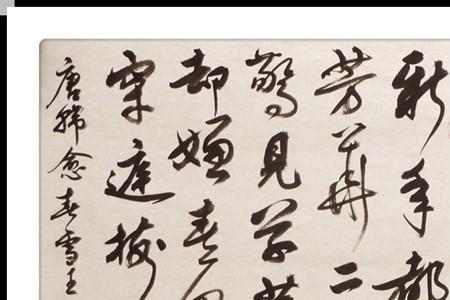 新年都
芳華二
驚見草
却嫌春
穿庭樹
唐韓愈春雪王